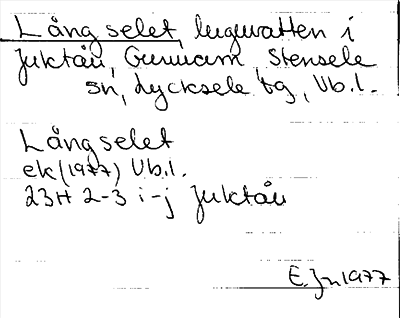 Långselet, lugnvatten i
Juktån, Gunnarn, Stensele
sn, Lycksele tg, Vb.l.
Långselet
ek (1977) Vb.l.
23H 2-3 i-j Juktån
E. Jn 1977